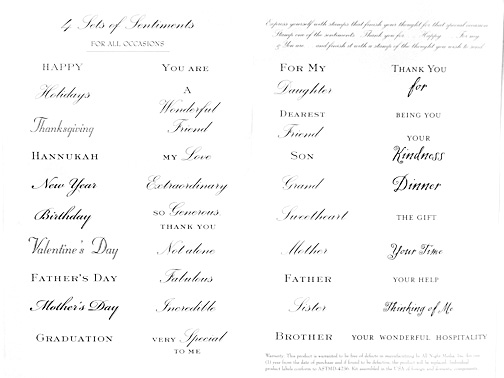 4 Sets of Sentiments
FOR ALL OCCASIONS
HAPPY
Holidays
Thanksgiving
HANNUKAH
New Year
Birthday
Valentine's Day
FATHER'S DAY
Mother's Day
GRADUATION
YOU ARE
A
Wonderful
Friend
MY Love
Extraordinary
SO Generous
THANK YOU
Not alone
Fabulous
Incredible
VERY Special
TO ME
Express yourself with stamps that finish your thought for that special occasion
Stamp one of the sentiments Thank you for Happy For my
You are and finish it with a stamp of the thought you wish to send
FOR MY
Daughter
DEAREST
Friend
SON
Grand
Sweetheart
Mother
FATHER
Sister
BROTHER
THANK YOU
for
BEING YOU
YOUR
Kindness
Dinner
THE GIFT
Your Time
YOUR HELP
Thinking of Me
YOUR WONDERFUL HOSPITALITY
Warranty. This product is warranted to be free of defects in manufacturing by All Night Media, Inc. for one
(1) year from the date of purchase and if found to be defective, the product will be replaced. Individual
product labels conform to ASTMD 4236. Kit assembled in the USA of foreign and domestic components